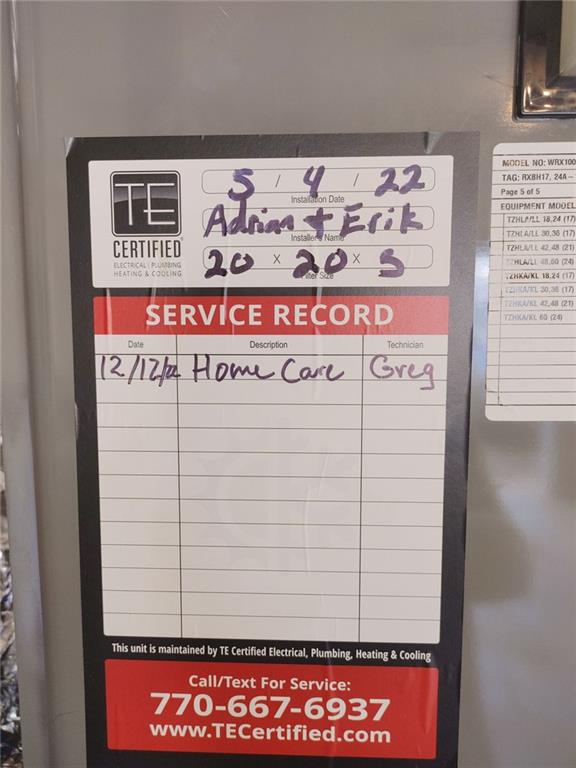 5 / 4 / 22
Installation Date
Adrian + Erik
Installer's Name
20 x 20 x 5
Filter Size
TE
CERTIFIED
ELECTRICAL | PLUMBING
HEATING & COOLING
SERVICE RECORD
Date Description Technician
12/12/22 Home Care Greg
This unit is maintained by TE Certified Electrical, Plumbing, Heating & Cooling
Call/Text For Service:
770-667-6937
www.TECertified.com
MODEL NO: WRX100
TAG: RXBH17, 24A -
Page 5 of 5
EQUIPMENT MODEL
TZHLA/LL 18,24 (17)
TZHLA/LL 30,36 (17)
TZHLA/LL 42,48 (21)
TZHLA/LL 48,60 (24)
TZHKA/KL 18,24 (17)
TZHKA/KL 30,36 (17)
TZHKA/KL 42,48 (21)
TZHKA/KL 60 (24)